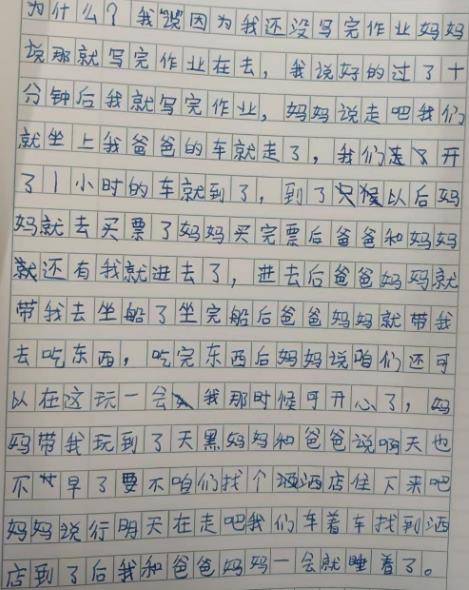 为什么？我说因为我还没写完作业妈妈
说那就写完作业在去，我说好的过了十
分钟后我就写完作业，妈妈说走吧我们
就坐上我爸爸的车就走了，我们走了开
了1小时的车就到了，到了以后妈
妈就去买票了妈妈买完票后爸爸和妈妈
就还有我就进去了，进去后爸爸妈妈就
带我去坐船了坐完船后爸爸妈妈就带我
去吃东西，吃完东西后妈妈说咱们还可
以在这玩一会我那时候可开心了，妈
妈带我玩到了天黑妈妈和爸爸说啊天也
不早了要不咱们找个酒店住下来吧
妈妈说行明天在走吧我们车着车找到酒
店到了后我和爸爸妈妈一会就睡着了。